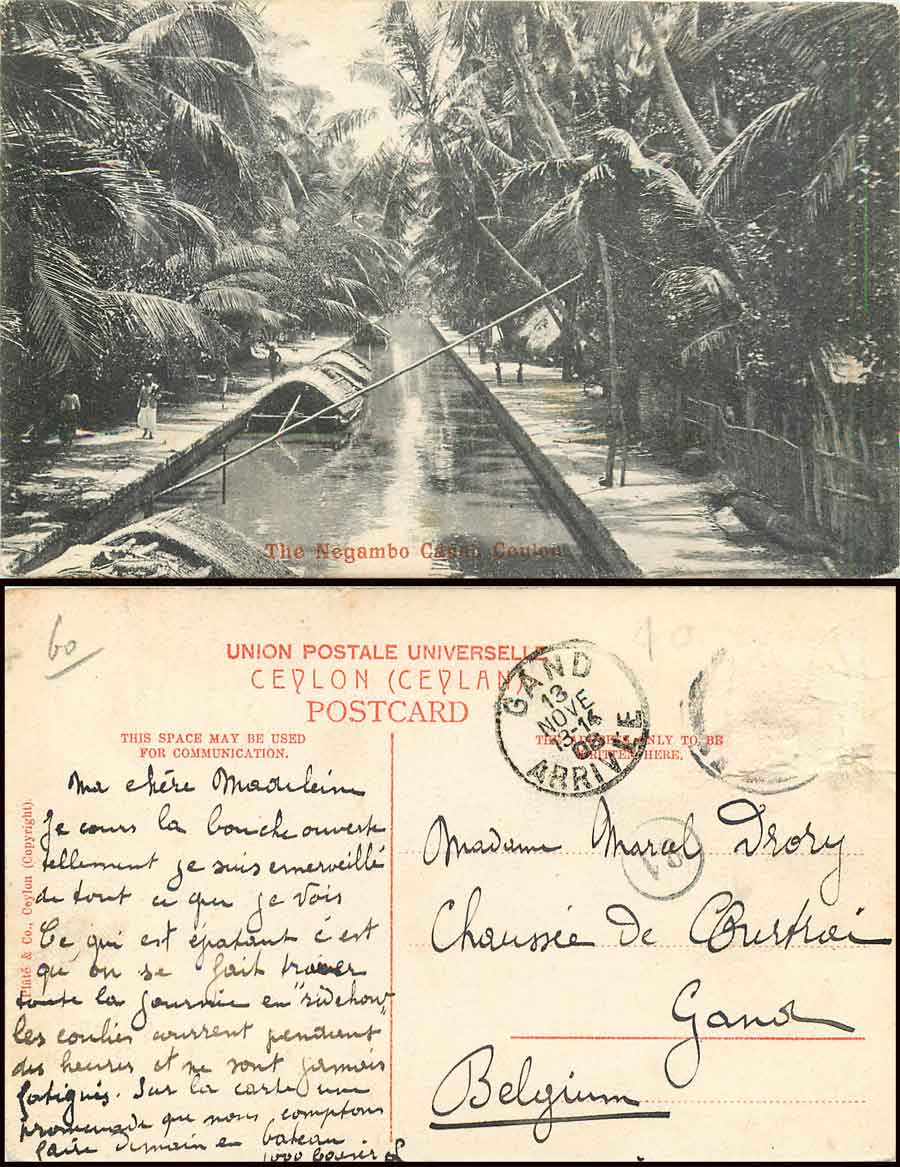 The Negambo Canal, Ceylon
60
UNION POSTALE UNIVERSELLE
CEYLON (CEYLAN)
POSTCARD
THIS SPACE MAY BE USED
FOR COMMUNICATION.
THE ADDRESS ONLY TO BE
WRITTEN HERE.
GAND
13
NOVE
13-14
08
ARRIVEE
Plâté & Co., Ceylon (Copyright).
Ma chère Madeleine
Je cours la bouche ouverte
tellement je suis emerveillé
de tout ce que je vois
Ce qui est épatant c'est
qu'on se fait trainer
toute la journée en "rickshow"
les coulies courrent pendant
des heures et ne sont jamais
fatigués. Sur la carte une
promenade que nous comptons
faire demain en bateau
1000 baisers
Madame Marcel Drory
Chaussée de Courtrai
Gand
Belgium